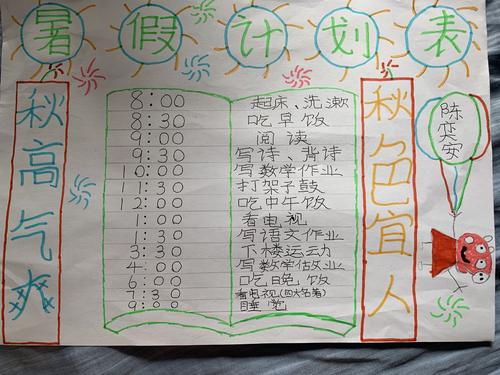 暑假计划表
秋高气爽
8:00 起床、洗漱
8:30 吃早饭
9:00 阅读
9:30 写诗、背诗
10:00 写数学作业
11:30 打架子鼓
12:00 吃中午饭
1:00 看电视
1:30 写语文作业
3:30 下楼运动
4:00 写数学作业
6:00 吃晚饭
7:30 看电视(四大名著)
9:00 睡觉
秋色宜人
陈奕安